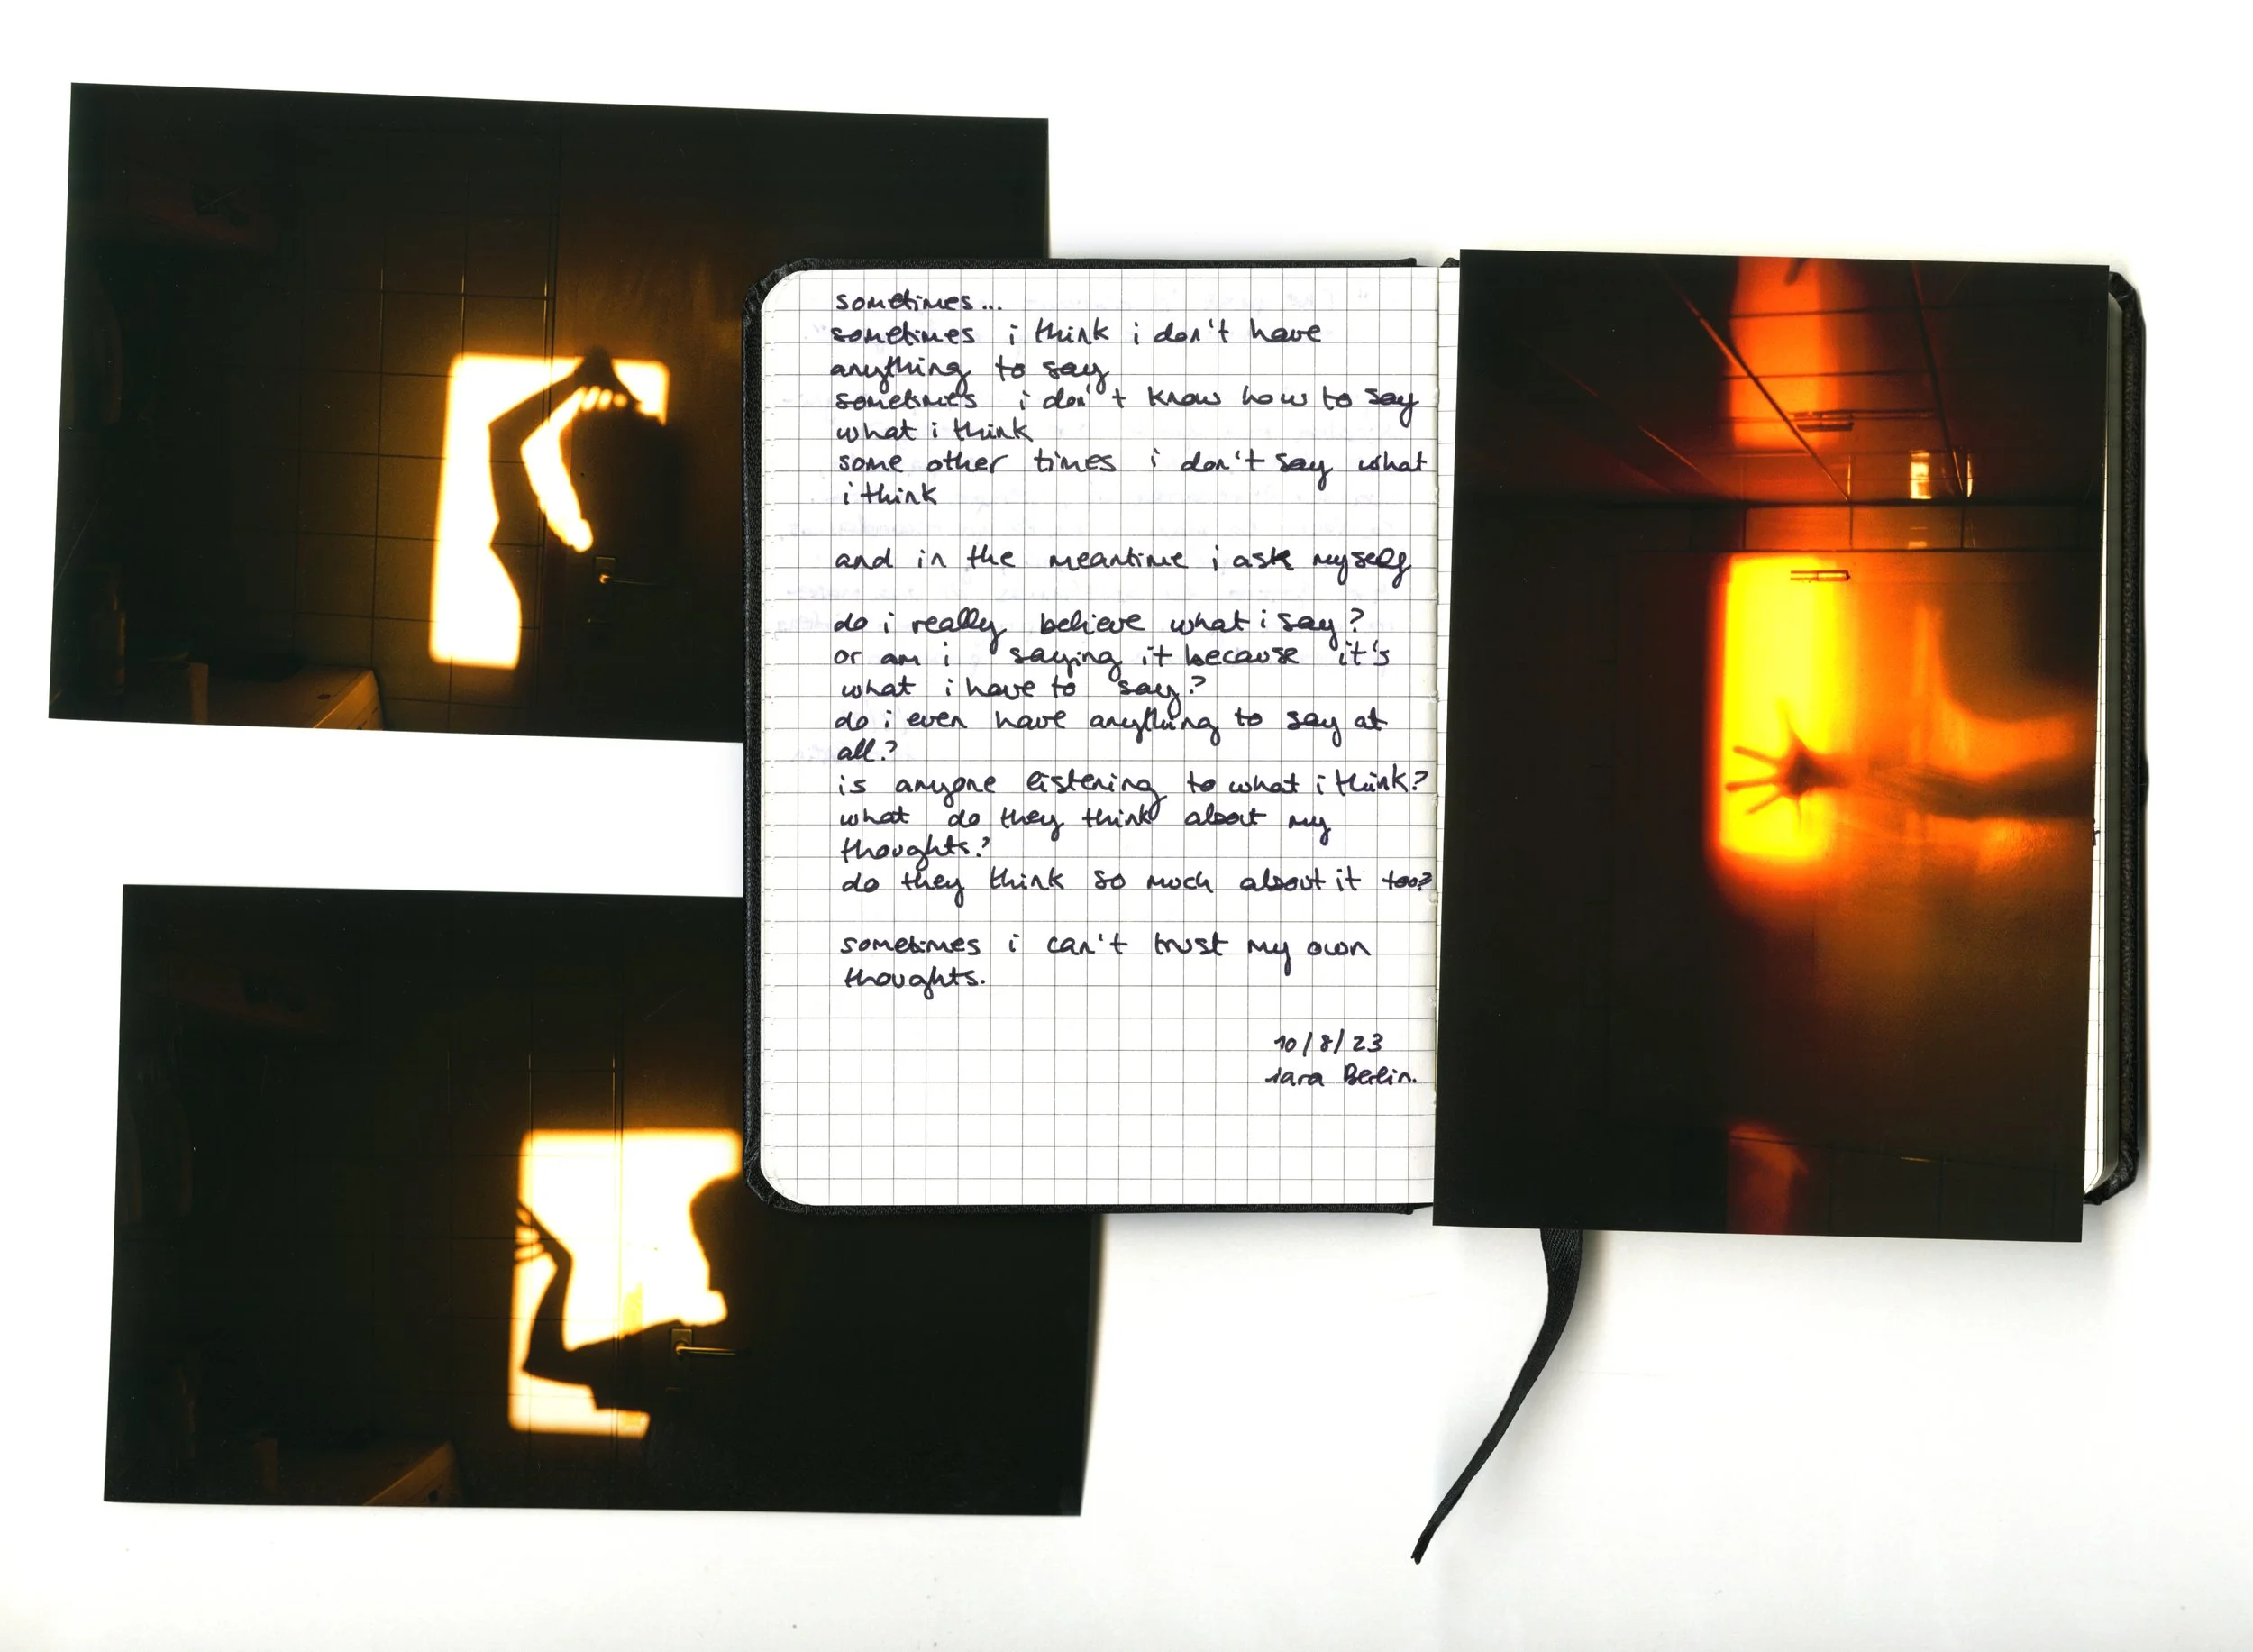 sometimes...
sometimes i think i don't have
anything to say
sometimes i don't know how to say
what i think
some other times i don't say what
i think
and in the meantime i ask myself
do i really believe what i say?
or am i saying it because it's
what i have to say?
do i even have anything to say at
all?
is anyone listening to what i think?
what do they think about my
thoughts?
do they think so much about it too?
sometimes i can't trust my own
thoughts.
10/8/23
iara Berlin.